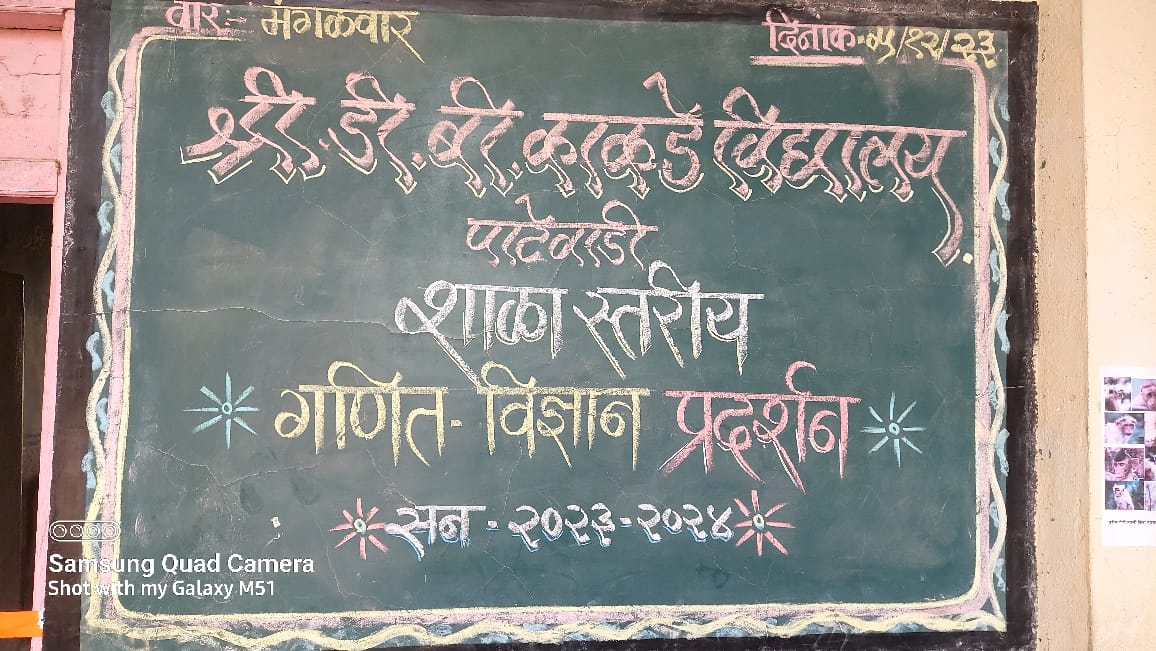 वार:- मंगळवार
दिनांक-०५/१२/२३
श्री.डी.बी.काकडे विद्यालय
पाटेवाडी
शाळा स्तरीय
गणित- विज्ञान प्रदर्शन
सन - २०२३-२०२४
Samsung Quad Camera
Shot with my Galaxy M51